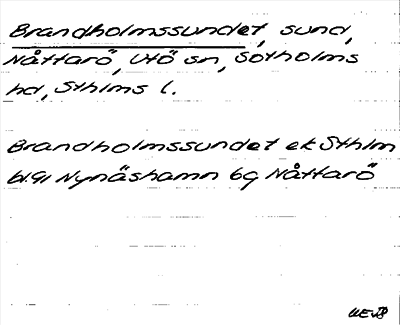 Brandholmssundet, sund,
Nåttarö, Utö sn, Sotholms
hd, Sthlms l.
Brandholmssundet ek Sthlm
bl.91 Nynäshamn 6g Nåttarö